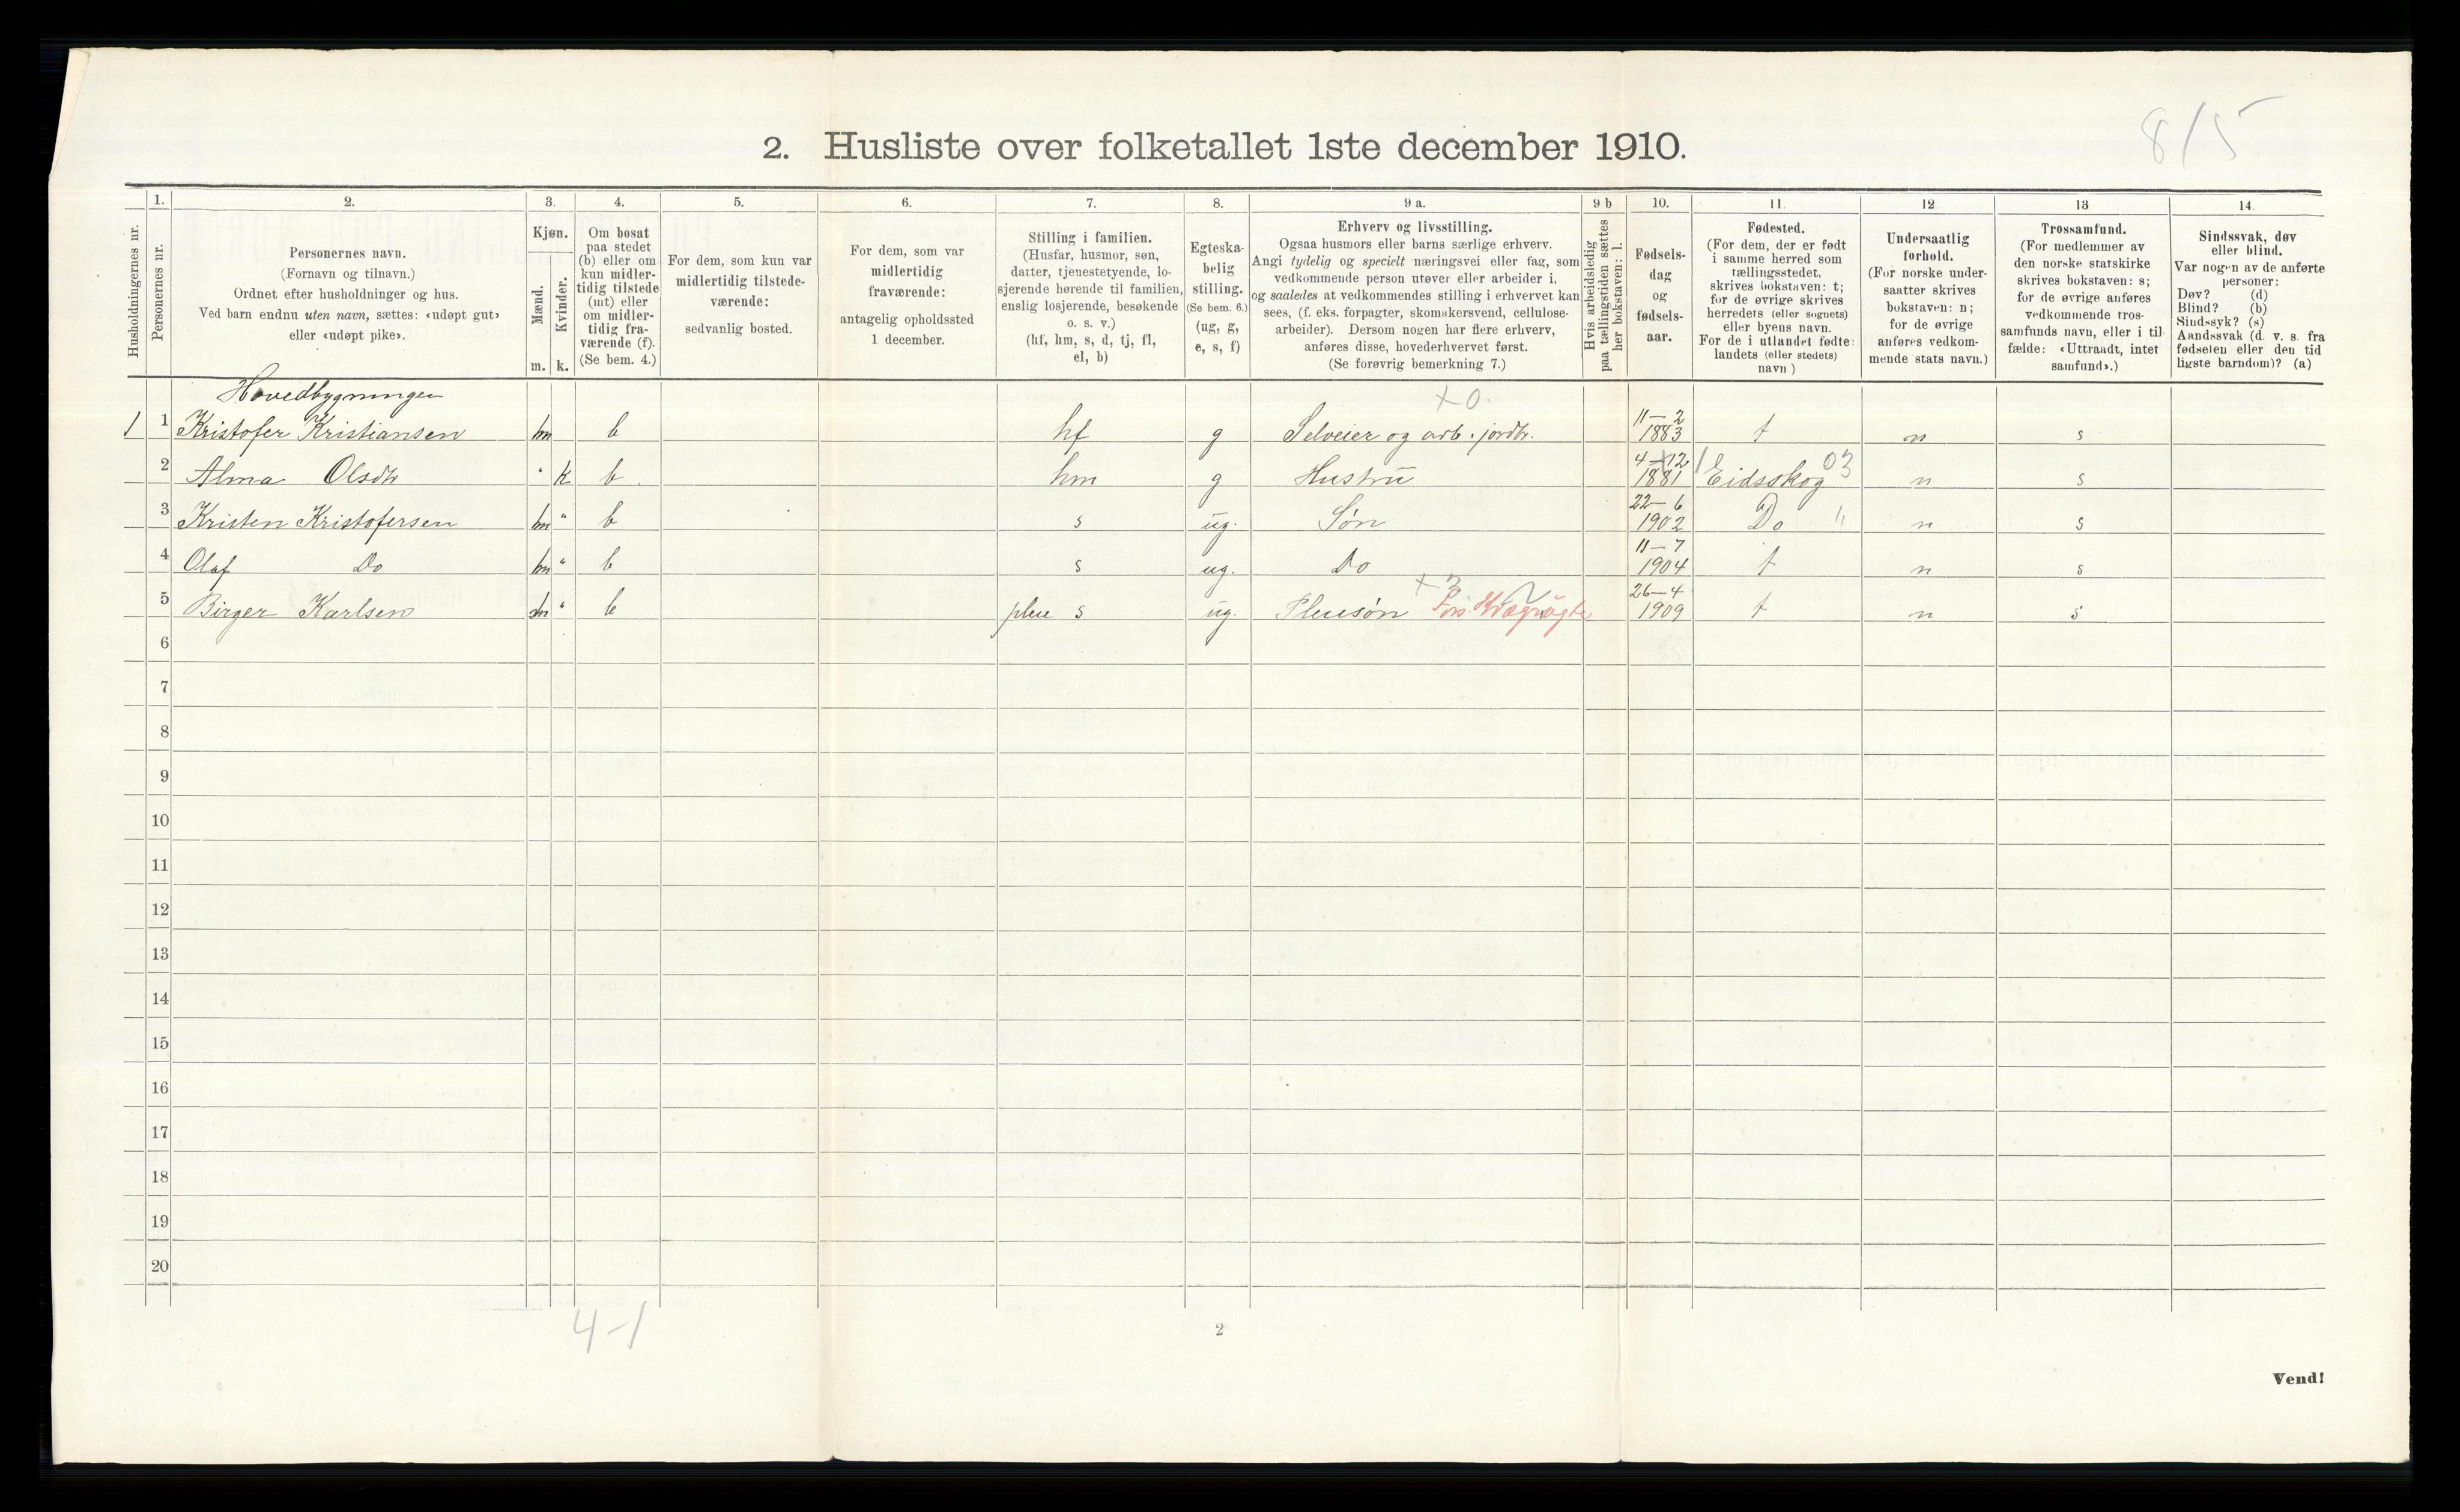 8/5
2. Husliste over folketallet 1ste december 1910.
Husholdningernes nr.
1.
Personernes nr.
2.
Personernes navn.
(Fornavn og tilnavn.)
Ordnet efter husholdninger og hus.
Ved barn endnu uten navn, sættes: «udøpt gut»
eller «udøpt pike».
3.
Kjøn.
Mænd.
Kvinder.
m. k.
4.
Om bosat
paa stedet
(b) eller om
kun midler-
tidig tilstede
(mt) eller
om midler-
tidig fra-
værende (f).
(Se bem. 4.)
5.
For dem, som kun var
midlertidig tilstede-
værende:
sedvanlig bosted.
6.
For dem, som var
midlertidig
fraværende:
antagelig opholdssted
1 december.
7.
Stilling i familien.
(Husfar, husmor, søn,
datter, tjenestetyende, lo-
sjerende hørende til familien,
enslig losjerende, besøkende
o. s. v.)
(hf, hm, s, d, tj, fl,
el, b)
8.
Egteska-
belig
stilling.
(Se bem. 6.)
(ug, g,
e, s, f)
9 a.
Erhverv og livsstilling.
Ogsaa husmors eller barns særlige erhverv.
Angi tydelig og specielt næringsvei eller fag, som
vedkommende person utøver eller arbeider i,
og saaledes at vedkommendes stilling i erhvervet kan
sees, (f. eks. forpagter, skomakersvend, cellulose-
arbeider). Dersom nogen har flere erhverv,
anføres disse, hovederhvervet først.
(Se forøvrig bemerkning 7.)
9 b
Hvis arbeidsledig
paa tællingstiden sættes
her bokstaven: l.
10.
Fødsels-
dag
og
fødsels-
aar.
11.
Fødested.
(For dem, der er født
i samme herred som
tællingsstedet,
skrives bokstaven: t;
for de øvrige skrives
herredets (eller sognets)
eller byens navn.
For de i utlandet fødte:
landets (eller stedets)
navn)
12.
Undersaatlig
forhold.
(For norske under-
saatter skrives
bokstaven: n;
for de øvrige
anføres vedkom-
mende stats navn.)
13
Trossamfund.
(For medlemmer av
den norske statskirke
skrives bokstaven: s;
for de øvrige anføres
vedkommende tros-
samfunds navn, eller i til
fælde: «Uttraadt, intet
samfund».)
14.
Sindssvak, døv
eller blind.
Var nogen av de anførte
personer:
Døv? (d)
Blind? (b)
Sindssyk? (s)
Aandssvak (d. v. s. fra
fødselen eller den tid
ligste barndom)? (a)
Hovedbygningen
x 0.
1 1 Kristofer Kristiansen m b hf g Selveier og arb. jordbr. 11-2 1883 t n s
2 Alma Olsdtr " k b. hm g Hustrü 4-12 1881 Eidsskog 03 n s
3 Kristen Kristofersen m " b s üg. Søn 22-6 1902 Do " n s
4 Olaf Do m " b s ug. Do 11-7 1904 t n s
x 3
5 Birger Karlsen m " b pleie s üg. Pleiesøn Fors. Kvægrøgter 26-4 1909 t n s
6
7
8
9
10
11
12
13
14
15
16
17
18
19
20
4-1
2
Vend!